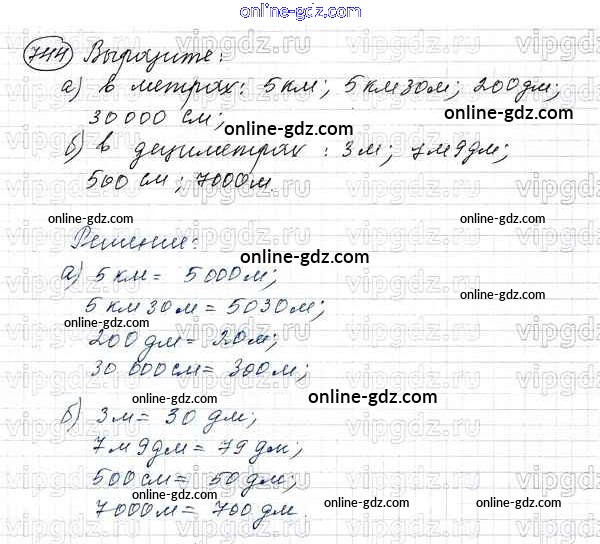 online-gdz.com
744 Выразите:
а) в метрах: 5 км; 5 км 30 м; 200 дм;
30000 см;
online-gdz.com
б) в дециметрах: 3 м; 7 м 9 дм;
500 см; 7000 м.
online-gdz.com
online-gdz.com
Решение:
online-gdz.com
а) 5 км = 5000 м;
5 км 30 м = 5030 м;
online-gdz.com
200 дм = 20 м;
30 000 см = 300 м;
online-gdz.com
б) 3 м = 30 дм;
7 м 9 дм = 79 дм;
500 см = 50 дм;
7000 м = 700 дм.
online-gdz.com
online-gdz.com
vipgdz.ru vipgdz.ru vipgdz.ru